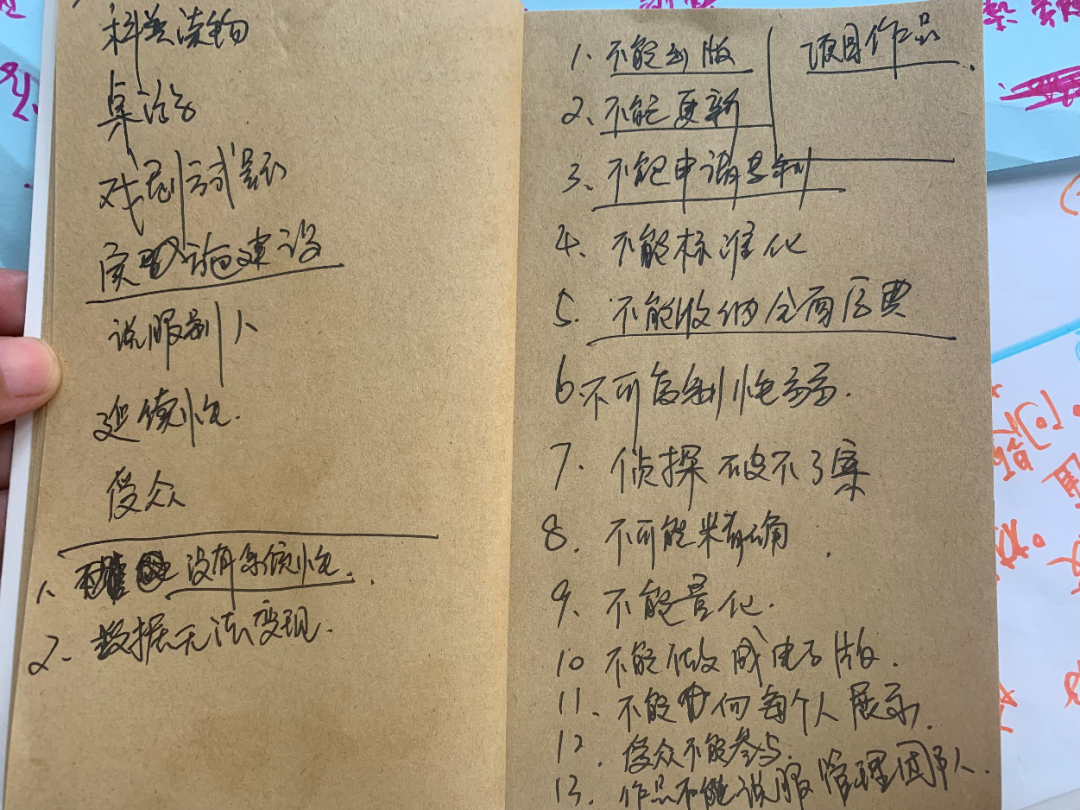 科普读物
桌游
戏剧式
建设
说服别人
延续性.
受众
1、没有系统性.
2、数据无法变现.
项目作品.
1、不能出版
2、不能更新
3、不能申请专利
4、不能标准化
5、不能收纳全面
6、不可复制性
7、侦探 破不了案
8、不可能 精确.
9、不能量化.
10 不能做成电子版.
11、不能向每个人展示.
12、受众不能参与.
13、作品不能说服管理团队.